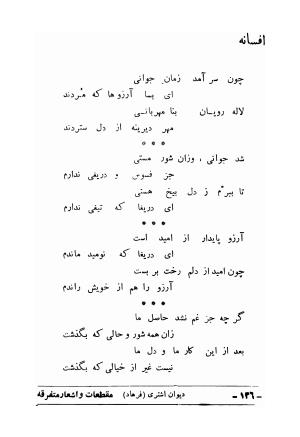 افسانه
چون سر آمد زمان جوانی
ای بسا آرزوها که مُردند
لاله رویان بنا مهربانی
مهر دیرینه از دل ستردند
* * *
شد جوانی، وزان شور مستی
جز فسوس و دریغی ندارم
تا ببرّم ز دل بیخ هستی
ای دریغا که تیغی ندارم
* * *
آرزو پایدار از امید است
ای دریغا که نومید ماندم
چون امید از دلم رخت بر بست
آرزو را هم از خویش راندم
* * *
گر چه جز غم نشد حاصل ما
زان همه شور و حالی که بگذشت
بعد از این کار ما و دل ما
نیست غیر از خیالی که بگذشت
-۱۳۶- دیوان اشتری (فرهاد) مقطعات و اشعار متفرقه